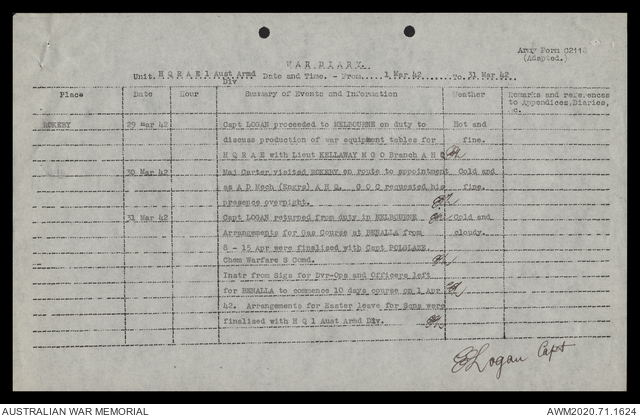 Army Form C2118
(Adapted.)
WAR DIARY.
Unit. H Q R A E 1 Aust Armd Div Date and Time. - From 1 Mar 42 To 31 Mar 42
Place Date Hour Summary of Events and Information Weather Remarks and references to Appendices, Diaries, &c.
ROKEBY 29 Mar 42 Capt LOGAN proceeded to MELBOURNE on duty to Hot and
discuss production of war equipment tables for fine.
H Q R A E with Lieut KELLAWAY M G O Branch A H Q
30 Mar 42 Maj Carter visited ROKEBY en route to appointment Cold and
as A D Mech (Engrs) A H Q. G O C requested his fine.
presence overnight.
31 Mar 42 Capt LOGAN returned from duty in MELBOURNE Cold and
Arrangements for Gas Course at BENALLA from cloudy.
8 - 15 Apr were finalised with Capt POLGLAZE,
Chem Warfare S Comd.
Instr from Sigs for Dvr-Ops and Officers left
for BENALLA to commence 10 days course on 1 Apr
42. Arrangements for Easter leave for Sens were
finalised with H Q 1 Aust Armd Div.
Logan Capt
AUSTRALIAN WAR MEMORIAL AWM2020.71.1624